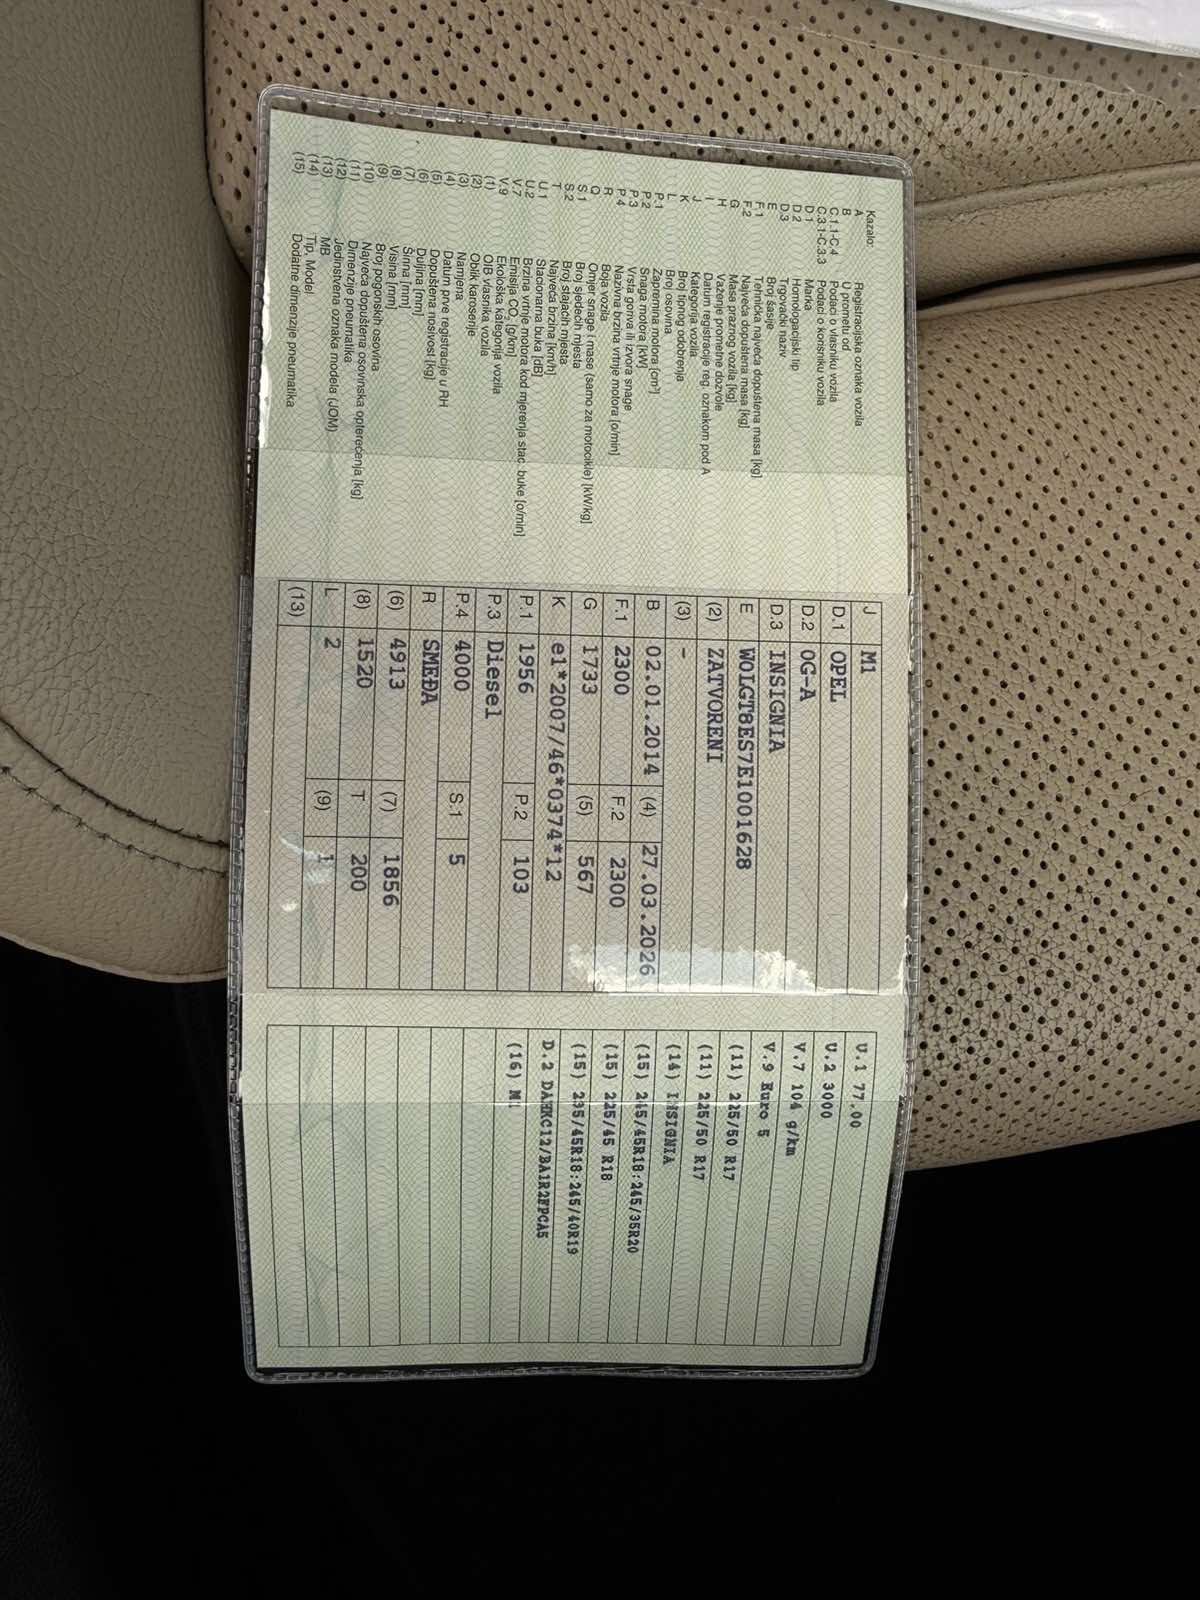 Kazalo:
A Registracijska oznaka vozila
B U prometu od
C.1.1-C.4 Podaci o vlasniku vozila
C.3.1-C.3.3 Podaci o korisniku vozila
D.1 Marka
D.2 Homologacijski tip
D.3 Trgovački naziv
E Broj šasije
F.1 Tehnička najveća dopuštena masa [kg]
F.2 Najveća dopuštena masa [kg]
G Masa praznog vozila [kg]
H Važenje prometne dozvole
I Datum registracije reg. oznakom pod A
J Kategorija vozila
K Broj tipnog odobrenja
L Broj osovina
P.1 Zapremina motora [cm³]
P.2 Snaga motora [kW]
P.3 Vrsta goriva ili izvora snage
P.4 Nazivna brzina vrtnje motora [o/min]
R Boja vozila
Q Omjer snage i mase (samo za motocikle) [kW/kg]
S.1 Broj sjedećih mjesta
S.2 Broj stajaćih mjesta
T Najveća brzina [km/h]
U.1 Stacionarna buka [dB]
U.2 Brzina vrtnje motora kod mjerenja stac. buke [o/min]
V.7 Emisija CO₂ [g/km]
V.9 Ekološka kategorija vozila
(1) OIB vlasnika vozila
(2) Oblik karoserije
(3) Namjena
(4) Datum prve registracije u RH
(5) Dopuštena nosivost [kg]
(6) Duljina [mm]
(7) Širina [mm]
(8) Visina [mm]
(9) Broj pogonskih osovina
(10) Najveća dopuštena osovinska opterećenja [kg]
(11) Dimenzije pneumatika
(12) Jedinstvena oznaka modela (JOM)
(13) MB
(14) Tip, Model
(15) Dodatne dimenzije pneumatika
J M1
D.1 OPEL
D.2 0G-A
D.3 INSIGNIA
E W0LGT8ES7E1001628
(2) ZATVORENI
(3) -
B 02.01.2014 (4) 27.03.2026
F.1 2300 F.2 2300
G 1733 (5) 567
K e1*2007/46*0374*12
P.1 1956 P.2 103
P.3 Diesel
P.4 4000 S.1 5
R SMEĐA
(6) 4913 (7) 1856
(8) 1520 T 200
L 2 (9) 1
(13)
U.1 77.00
U.2 3000
V.7 104 g/km
V.9 Euro 5
(11) 225/50 R17
(11) 225/50 R17
(14) INSIGNIA
(15) 245/45R18:245/35R20
(15) 225/45 R18
(15) 235/45R18:245/40R19
D.2 DAEKC12/BA1R2FPCA5
(16) M1